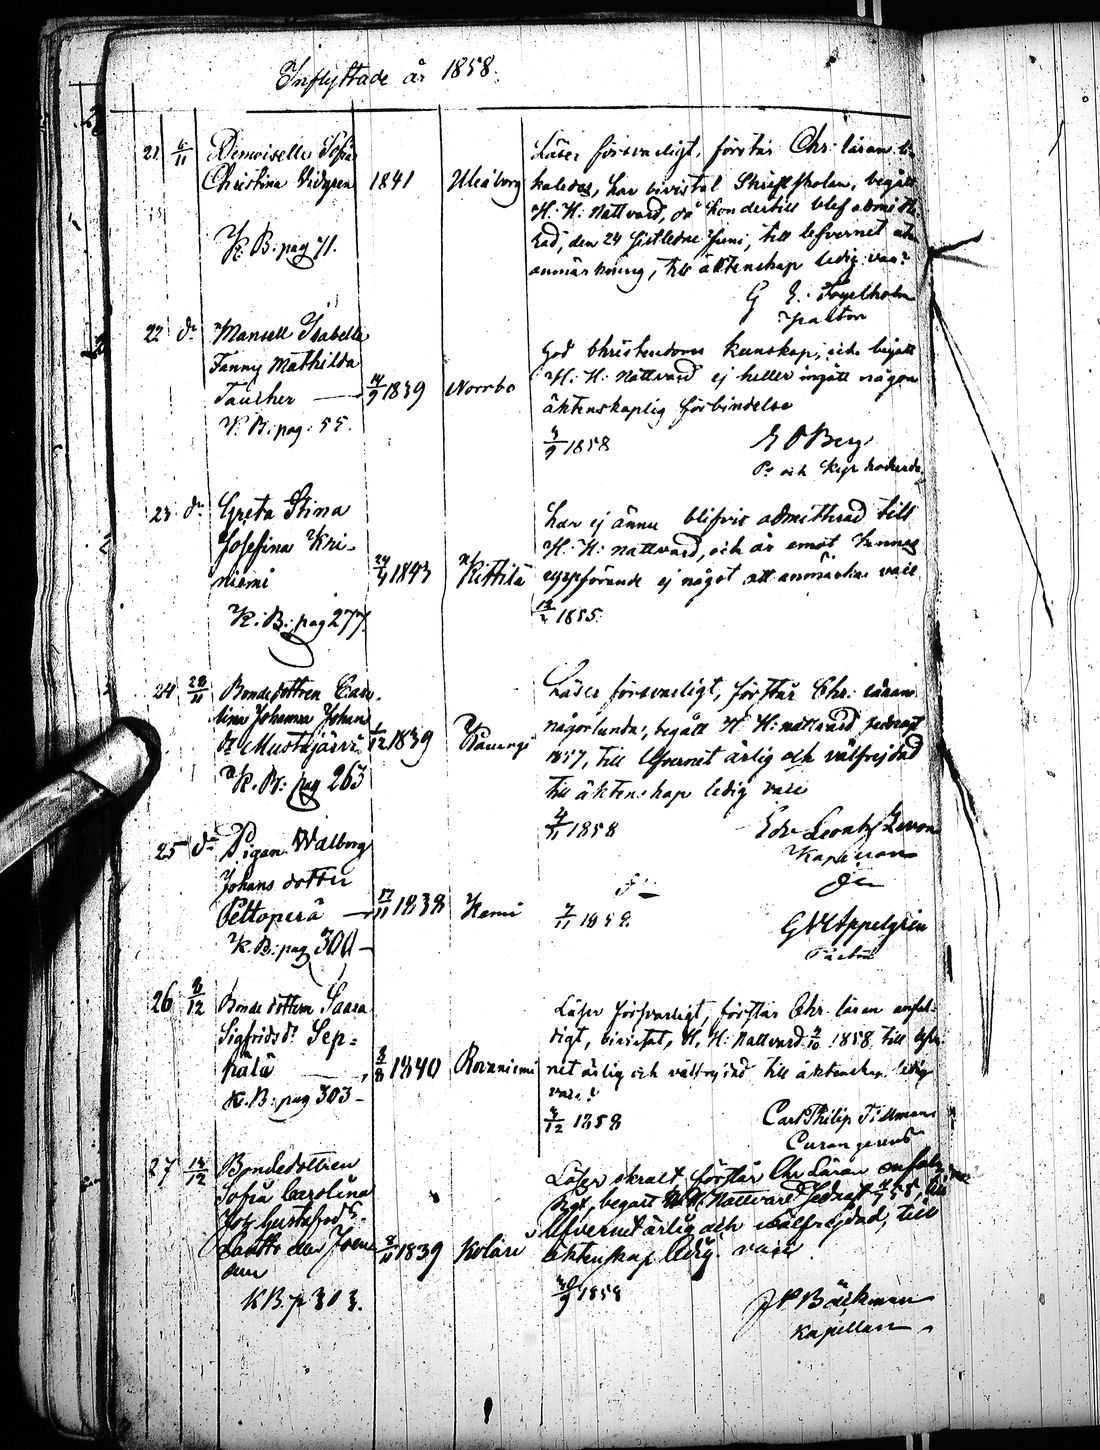 Inflyttade år 1858.
21 6/11 Demoiselle Sofia
Christina Widgren 1841 Uleåborg
K. B: pag 71.
Läser försvarligt, förstår Chr. läran
har bivistat Skriftskolan, begått
H. H. Nattvard, då hon dertill blef admitte-
rad, den 24 sistledne Juni, till lefvernet utan
anmärkning, till äktenskap ledig. var?
Pastor
22 do Mamsell Isabella
Fanny Mathilda
Taucher — 14/9 1839 Norrbo
K. B. pag. 55.
God Christendoms kunskap, begått
H. H. Nattvard ej heller ingått någon
äktenskaplig förbindelse
3/9 1858 Berg
23 do Greta Stina
Josefina Kri-
niemi 24/4 1843 Kittilä
K. B. pag 277.
har ej ännu blifvit admitterad till
H. H. nattvard, och är emot hennes
uppförande ej något att anmärka vare
1855.
24 28/11 Bondedottren Caro-
lina Johanna Johans
dr Mustajärvi 1/12 1839
K. B: pag 263
Läser försvarligt, förstår Chr. läran
någorlunda, begått H. H. nattvard sednast
1857, till lefvernet ärlig och välfrejdad
till äktenskap ledig vare
4/11 1858
Kaplan
25 do Pigan Walborg
Johans dotter
Peltoperä — 17/11 1838 Kemi
K. B: pag 300 —
7/11 1858. Appelgren
Pastor
26 8/12 Bondedottern Saara
Sigfridsdr Sep-
pälä 8/8 1840 Rovaniemi
K. B: pag 303 —
Läser försvarligt, förstår Chr. läran enfal-
digt, bivistat, H. H. Nattvard 3/10 1858 till lefver-
net ärlig och välfrejdad till äktenskap ledig
vare?
4/12 1858 Carl Philip Tillman
Curam gerens
27 14/12 Bondedottren
Sofia Carolina
Gustafsdr
1839 Kolari
KB. p 303.
Läser skralt förstår Chr Läran enfal-
digt, begått H. H. Nattvard sednast 58, till
lefvernet ärlig och wälfrejdad, till
äktenskap ledig. vare
30/9 1858 J P Bäckman
Kapellan.